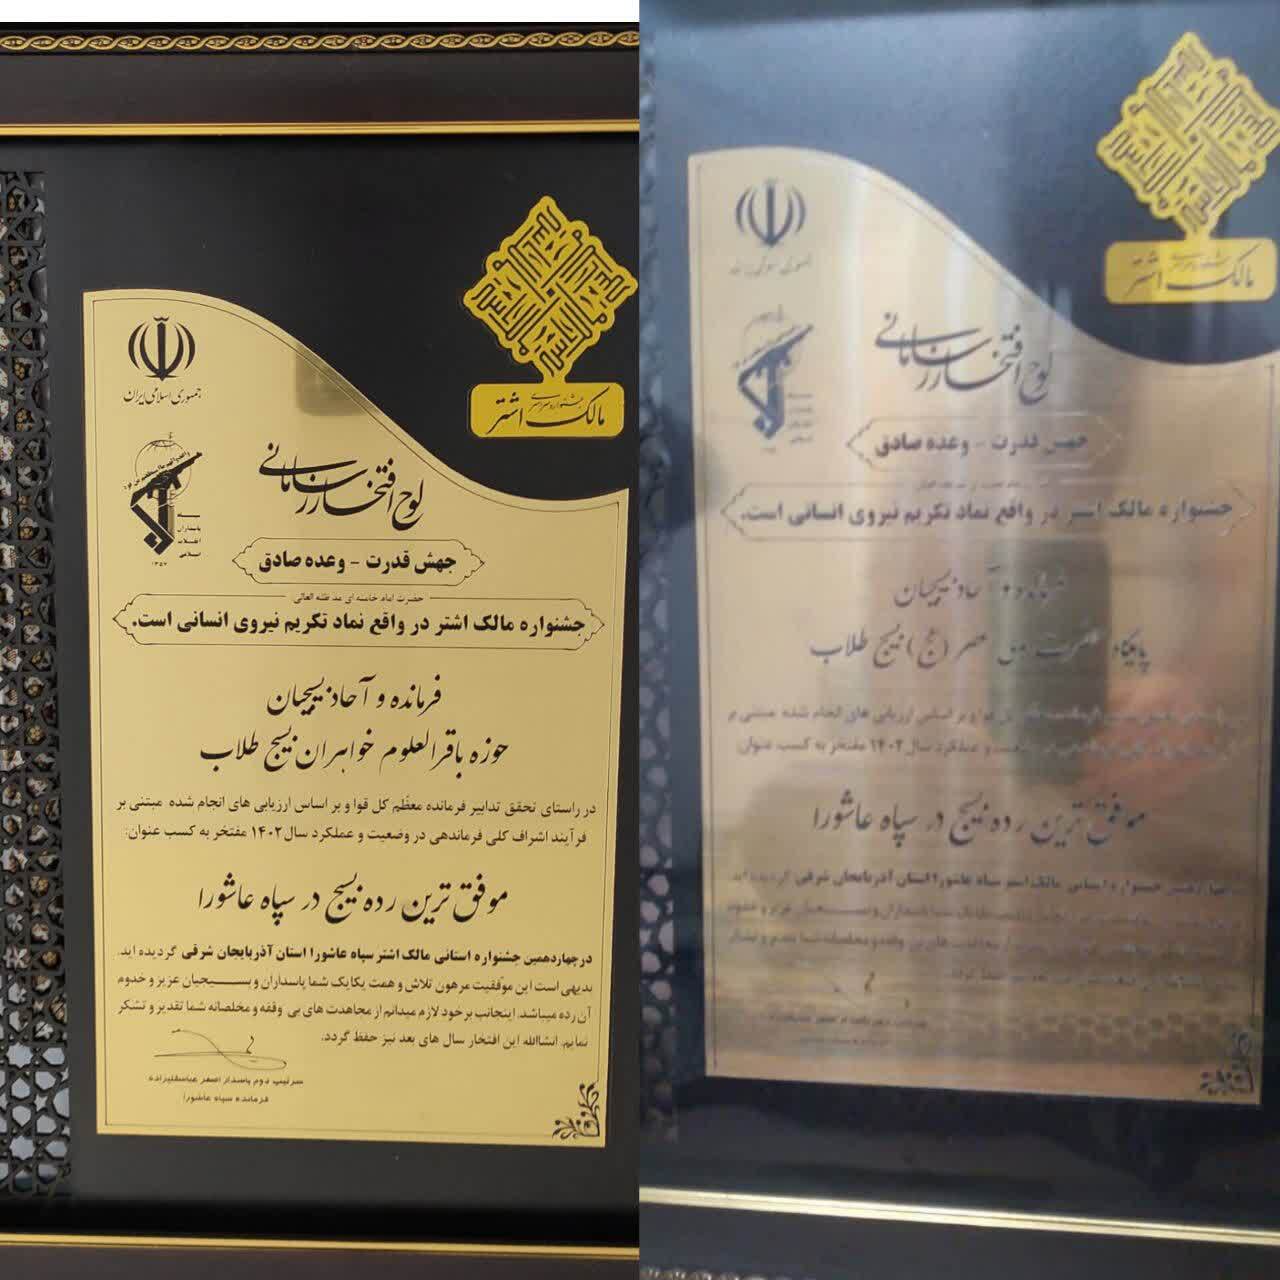 جشنواره سراسری
مالک اشتر
جمهوری اسلامی ایران
سپاه
پاسداران
انقلاب
اسلامی
۱۳۵۷
لوح افتخار سازمانی
جهش قدرت - وعده صادق
حضرت امام خامنه ای مد ظله العالی
جشنواره مالک اشتر در واقع نماد تکریم نیروی انسانی است.
فرمانده و آحاد بسیجیان
حوزه باقرالعلوم خواهران بسیج طلاب
در راستای تحقق تدابیر فرمانده معظّم کل قوا و بر اساس ارزیابی های انجام شده مبتنی بر
فرآیند اشراف کلی فرماندهی در وضعیت و عملکرد سال ۱۴۰۲ مفتخر به کسب عنوان:
موفق ترین رده بسیج در سپاه عاشورا
در چهاردهمین جشنواره استانی مالک اشتر سپاه عاشورا استان آذربایجان شرقی گردیده اید.
بدیهی است این موفّقیت مرهون تلاش و همت یکایک شما پاسداران و بسیجیان عزیز و خدوم
آن رده میباشد. اینجانب بر خود لازم میدانم از مجاهدت های بی وقفه و مخلصانه شما تقدیر و تشکر
نمایم. انشاالله این افتخار سال های بعد نیز حفظ گردد.
سرتیپ دوم پاسدار اصغر عباسقلیزاده
فرمانده سپاه عاشورا
مالک اشتر
لوح افتخار سازمانی
جهش قدرت - وعده صادق
جشنواره مالک اشتر در واقع نماد تکریم نیروی انسانی است.
فرمانده و آحاد بسیجیان
پایگاه عصر (عج) بسیج طلاب
قوا و بر اساس ارزیابی های انجام شده مبتنی بر
و عملکرد سال ۱۴۰۲ مفتخر به کسب عنوان
موفق ترین رده بسیج در سپاه عاشورا
جشنواره استانی مالک اشتر سپاه عاشورا استان آذربایجان شرقی گردیده اید